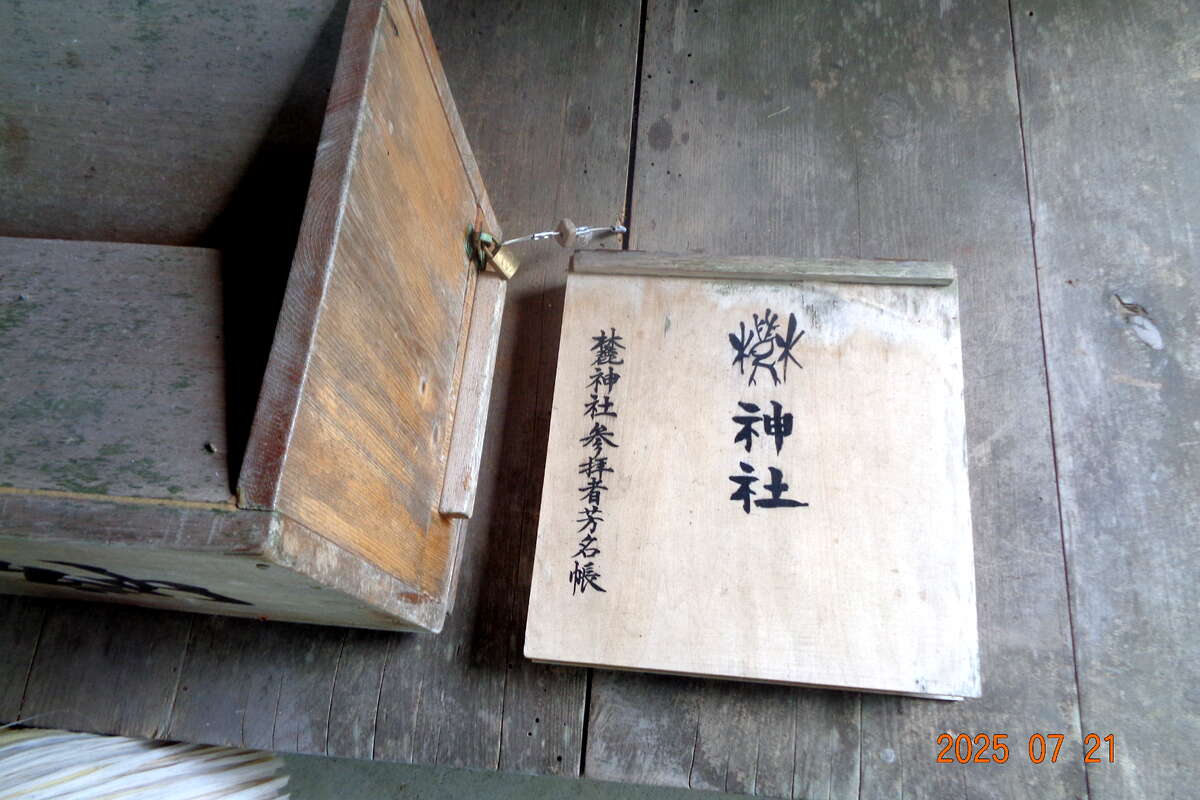 麓神社
麓神社参拝者芳名帳
2025 07 21